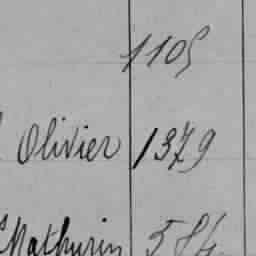 1105
Olivier 1379
Mathurin 584